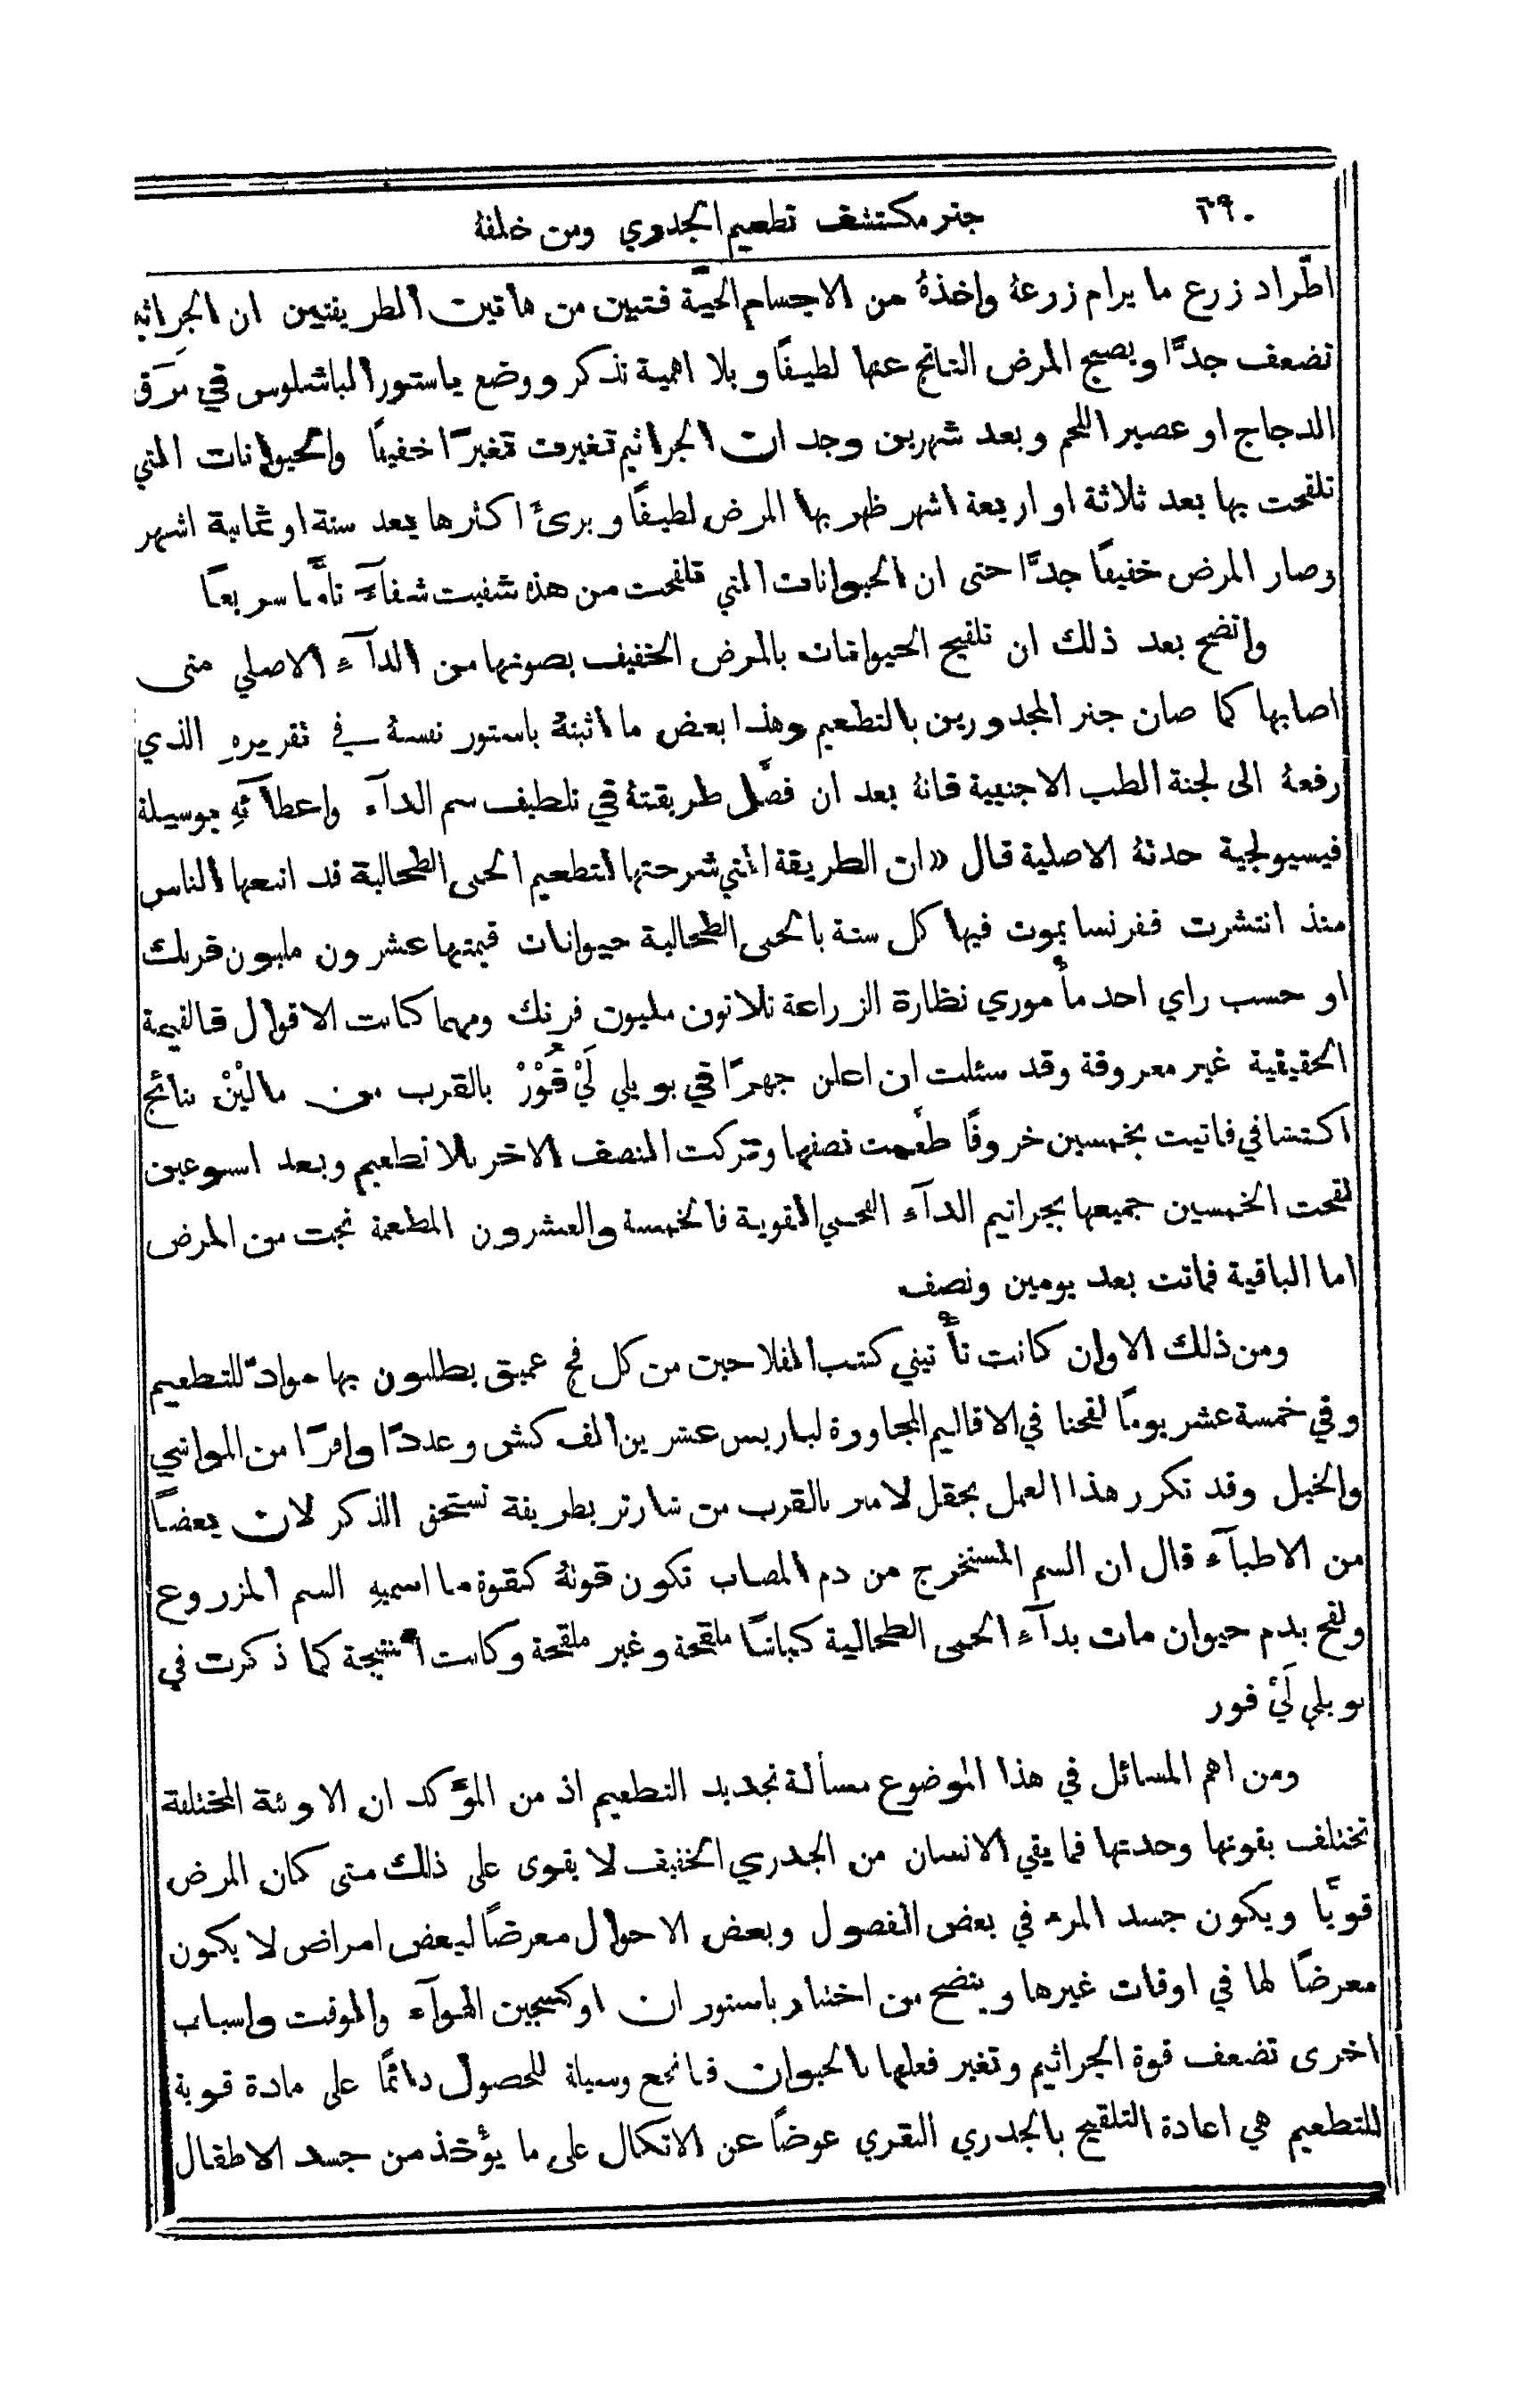 ٦٩٠ جنر مكتشف تطعيم الجدري ومن خلفهُ
اطّراد زرع ما يرام زرعهُ واخذهُ من الاجسام الحيَّة فتبين من هاتين الطريقتين ان الجراثيم
تضعف جدًّا ويصبح المرض الناتج عنها لطيفًا وبلا اهمية تذكر ووضع باستور الباشلوس في مَرَق
الدجاج او عصير اللحم وبعد شهرين وجد ان الجراثيم تغيرت تغيرًا خفيفًا والحيوانات التي
تلقحت بها بعد ثلاثة او اربعة اشهر ظهر بها المرض لطيفًا وبرئَ اكثرها بعد ستة او ثمانية اشهر
وصار المرض خفيفًا جدًّا حتى ان الحيوانات التي تلقحت من هذه شفيت شفآءً تامًّا سريعًا
واتضح بعد ذلك ان تلقيح الحيوانات بالمرض الخفيف يصونها من الدآء الاصلي متى
اصابها كما صان جنر المجدورين بالتطعيم وهذا بعض ما اثبتهُ باستور نفسهُ في تقريرهِ الذي
رفعهُ الى لجنة الطب الاجنبية فانهُ بعد ان فصَّل طريقتهُ في تلطيف سم الدآء واعطآئهِ بوسيلة
فيسيولجية حدتهُ الاصلية قال «ان الطريقة التي شرحتها لتطعيم الحمى الطحالية قد اتبعها الناس
منذ انتشرت ففرنسا يموت فيها كل سنة بالحمى الطحالية حيوانات قيمتها عشرون مليون فرنك
او حسب راي احد مأموري نظارة الزراعة ثلاثون مليون فرنك ومهما كانت الاقوال فالقيمة
الحقيقية غير معروفة وقد سئلت ان اعلن جهرًا في بويلي لَيْ فَوْرْ بالقرب من مالَيْنْ نتائج
اكتشافي فاتيت بخمسين خروفًا طعمت نصفها وتركت النصف الاخر بلا تطعيم وبعد اسبوعين
لقحت الخمسين جميعها بجراثيم الدآء الفحمي القوية فالخمسة والعشرون المطعمة نجت من المرض
اما الباقية فماتت بعد يومين ونصف
ومن ذلك الاوان كانت تأتيني كتب الفلاحين من كل فج عميق يطلبون بها موادّ للتطعيم
وفي خمسة عشر يومًا لقحنا في الاقاليم المجاورة لباريس عشرين الف كبش وعددًا وافرًا من المواشي
والخيل وقد تكرر هذا العمل بحقل لامبر بالقرب من شارتر بطريقة تستحق الذكر لان بعضًا
من الاطبآء قال ان السم المستخرج من دم المصاب تكون قوتهُ كقوة ما اسميهِ السم المزروع
ولقح بدم حيوان مات بدآء الحمى الطحالية كباشًا ملقحة وغير ملقحة وكانت النتيجة كما ذكرت في
بويلي لَيْ فور
ومن اهم المسائل في هذا الموضوع مسألة تجديد التطعيم اذ من المؤَكد ان الاوبئة المختلفة
تختلف بقوتها وحدتها فما يقي الانسان من الجدري الخفيف لا يقوى على ذلك متى كان المرض
قويًّا ويكون جسد المرء في بعض الفصول وبعض الاحوال معرضًا لبعض امراض لا يكون
معرضًا لها في اوقات غيرها ويتضح من اختبار باستور ان اوكسجين الهوآء والوقت واسباب
اخرى تضعف قوة الجراثيم وتغير فعلها بالحيوان فانجع وسيلة للحصول دائمًا على مادة قوية
للتطعيم هي اعادة التلقيح بالجدري البقري عوضًا عن الاتكال على ما يؤخذ من جسد الاطفال